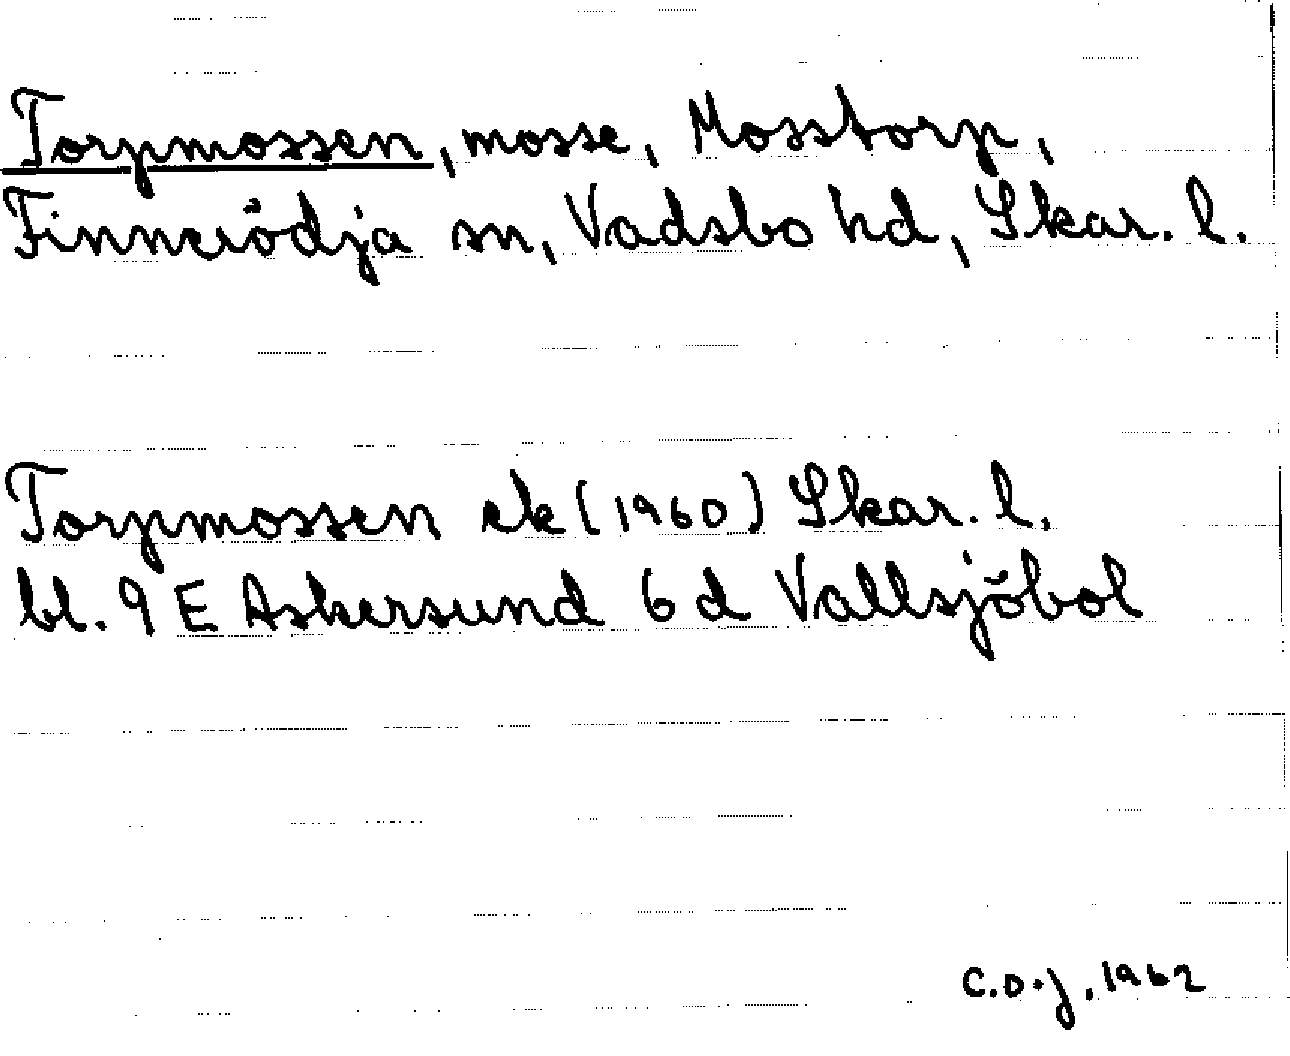 Torpmossen, mosse, Mosstorp,
Finnerödja sn, Vadsbo hd, Skar. l.
Torpmossen ek (1960) Skar. l.
bl. 9 E Askersund 6 d Vallsjöbol
C.O.J. 1962